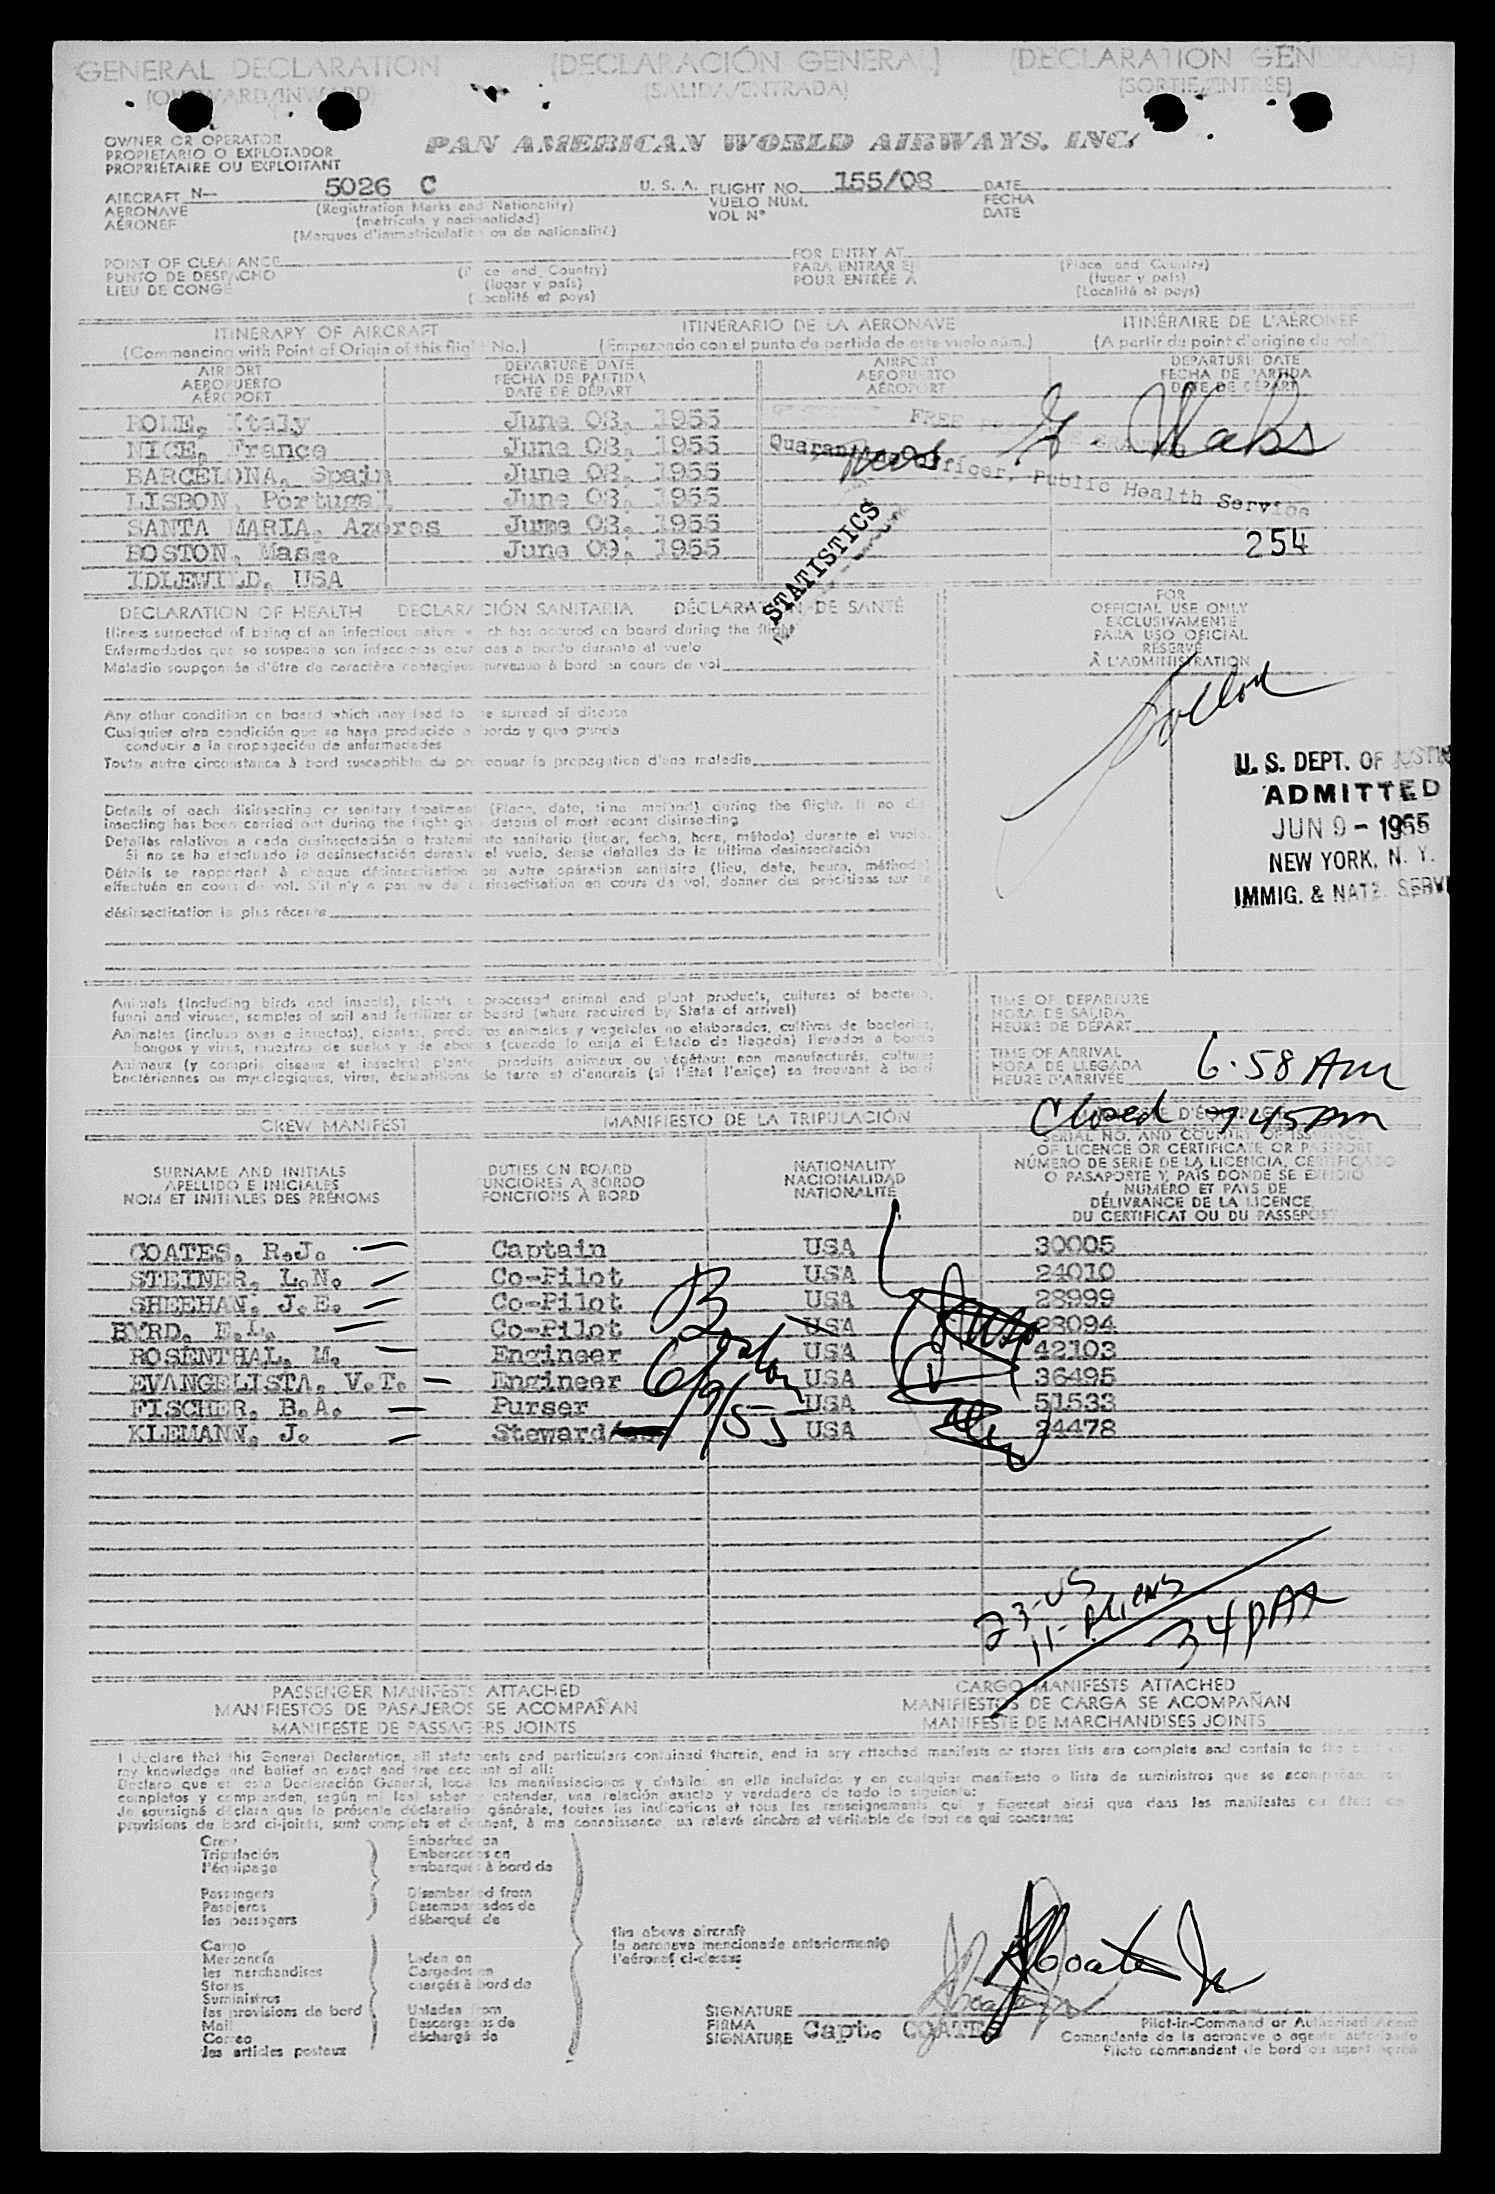 GENERAL DECLARATION (DECLARACIÓN GENERAL) (DECLARATION GÉNÉRALE)
(ONWARD/INWARD) (SALIDA/ENTRADA) (SORTIE/ENTRÉE)
OWNER OR OPERATOR
PROPIETARIO O EXPLOTADOR
PROPRIÉTAIRE OU EXPLOITANT
PAN AMERICAN WORLD AIRWAYS, INC.
AIRCRAFT N- 5026 C U. S. A. FLIGHT NO. 155/08 DATE
AERONAVE (Registration Marks and Nationality) VUELO NUM. FECHA
AÉRONEF (matrícula y nacionalidad) VOL Nº DATE
(Marques d'immatriculation ou de nationalité)
POINT OF CLEARANCE FOR ENTRY AT
PUNTO DE DESPACHO (Place and Country) PARA ENTRAR EN (Place and Country)
LIEU DE CONGÉ (lugar y país) POUR ENTRÉE À (lugar y país)
(Localité et pays) (Localité et pays)
ITINERARY OF AIRCRAFT ITINERARIO DE LA AERONAVE ITINÉRAIRE DE L'AÉRONEF
(Commencing with Point of Origin of this flight No.) (Empezando con el punto de partida de este vuelo núm.) (A partir du point d'origine du vol
AIRPORT DEPARTURE DATE AIRPORT DEPARTURE DATE
AEROPUERTO FECHA DE PARTIDA AEROPUERTO FECHA DE PARTIDA
AÉROPORT DATE DE DÉPART AÉROPORT DATE DE DÉPART
ROME, Italy June 08, 1955 FREE
NICE, France June 08, 1955 Quarantine Officer, Public Health Service
BARCELONA, Spain June 08, 1955
LISBON, Portugal June 08, 1955
SANTA MARIA, Azores June 08, 1955
BOSTON, Mass. June 09, 1955 254
IDLEWILD, USA
STATISTICS
DECLARATION OF HEALTH DECLARACIÓN SANITARIA DÉCLARATION DE SANTÉ
Illness suspected of being of an infectious nature which has occured on board during the flight
Enfermedades que se sospecha son infecciosas ocurridas a bordo durante el vuelo
Maladie soupçonnée d'être de caractère contagieux survenue à bord en cours de vol
FOR
OFFICIAL USE ONLY
EXCLUSIVAMENTE
PARA USO OFICIAL
RÉSERVÉ
À L'ADMINISTRATION
Any other condition on board which may lead to the spread of disease
Cualquier otra condición que se haya producido a bordo y que pueda
conducir a la propagación de enfermedades
Toute autre circonstance à bord susceptible de provoquer la propagation d'une maladie
U. S. DEPT. OF JUSTICE
ADMITTED
JUN 9 - 1955
NEW YORK, N. Y.
IMMIG. & NATZ. SERV
Details of each disinsecting or sanitary treatment (Place, date, time method) during the flight. If no dis-
insecting has been carried out during the flight give details of most recent disinsecting
Detalles relativos a cada desinsectación o tratamiento sanitario (lugar, fecha, hora, método) durante el vuelo.
Si no se ha efectuado la desinsectación durante el vuelo, dense detalles de la última desinsectación
Détails se rapportant à chaque désinsectisation ou autre opération sanitaire (lieu, date, heure, méthode)
effectuée en cours de vol. S'il n'y a pas eu de désinsectisation en cours de vol, donner des précisions sur la
désinsectisation la plus récente
Animals (including birds and insects), plants, unprocessed animal and plant products, cultures of bacteria,
fungi and viruses, samples of soil and fertilizer on board (where required by State of arrival)
Animales (incluso aves e insectos), plantas, productos animales y vegetales no elaborados, cultivos de bacterias,
hongos y virus, muestras de suelos y de abonos (cuando lo exija el Estado de llegada) llevados a bordo
Animaux (y compris oiseaux et insectes) plantes, produits animaux ou végétaux non manufacturés, cultures
bactériennes ou mycologiques, virus, échantillons de terre et d'engrais (si l'État l'exige) se trouvant à bord
TIME OF DEPARTURE
HORA DE SALIDA
HEURE DE DÉPART
TIME OF ARRIVAL
HORA DE LLEGADA
HEURE D'ARRIVÉE 6:58 AM
Closed 745 AM
CREW MANIFEST MANIFIESTO DE LA TRIPULACIÓN
SURNAME AND INITIALS DUTIES ON BOARD NATIONALITY SERIAL NO. AND COUNTRY OF ISSUANCE
APELLIDO E INICIALES FUNCIONES A BORDO NACIONALIDAD OF LICENCE OR CERTIFICATE OR PASSPORT
NOM ET INITIALES DES PRÉNOMS FONCTIONS À BORD NATIONALITÉ NÚMERO DE SERIE DE LA LICENCIA, CERTIFICADO
O PASAPORTE Y PAÍS DONDE SE EXPIDIÓ
NUMÉRO ET PAYS DE
DÉLIVRANCE DE LA LICENCE,
DU CERTIFICAT OU DU PASSEPORT
COATES, R.J. Captain USA 30005
STEINER, L.N. Co-Pilot USA 24010
SHEEHAN, J.E. Co-Pilot USA 28999
BYRD, E.L. Co-Pilot USA 28094
ROSENTHAL, M. Engineer USA 42103
EVANGELISTA, V.T. Engineer USA 36495
FISCHER, B.A. Purser USA 51533
KLEMANN, J. Steward USA 24478
Boston
6/9/55
23-US
11-Aliens
34 PAX
PASSENGER MANIFESTS ATTACHED CARGO MANIFESTS ATTACHED
MANIFIESTOS DE PASAJEROS SE ACOMPAÑAN MANIFIESTOS DE CARGA SE ACOMPAÑAN
MANIFESTE DE PASSAGERS JOINTS MANIFESTE DE MARCHANDISES JOINTS
I declare that this General Declaration, all statements and particulars contained therein, and in any attached manifests or stores lists are complete and contain to the best of
my knowledge and belief an exact and true account of all:
Declaro que en esta Declaración General, todas las manifestaciones y detalles en ella incluidos y en cualquier manifiesto o lista de suministros que se acompañan, son
completos y comprenden, según mi leal saber y entender, una relación exacta y verdadera de todo lo siguiente:
Je soussigné déclare que la présente déclaration générale, toutes les indications et tous les renseignements qui y figurent ainsi que dans les manifestes ou états de
provisions de bord ci-joints, sont complets et donnent, à ma connaissance, un relevé sincère et véritable de tout ce qui concerne:
Crew Embarked on
Tripulación Embarcados en
l'équipage embarqués à bord de
Passengers Disembarked from
Pasajeros Desembarcados de
les passagers débarqué de
the above aircraft
la aeronave mencionada anteriormente
l'aéronef ci-dessus
Cargo
Mercancía Laden on
les marchandises Cargados en
Stores chargés à bord de
Suministros
les provisions de bord Unladen from
Mail Descargados de
Correo déchargé de
les articles postaux
SIGNATURE
FIRMA
SIGNATURE Capt. COATES
Pilot-in-Command or Authorized Agent
Comandante de la aeronave o agente autorizado
Pilote commandant de bord ou agent agréé